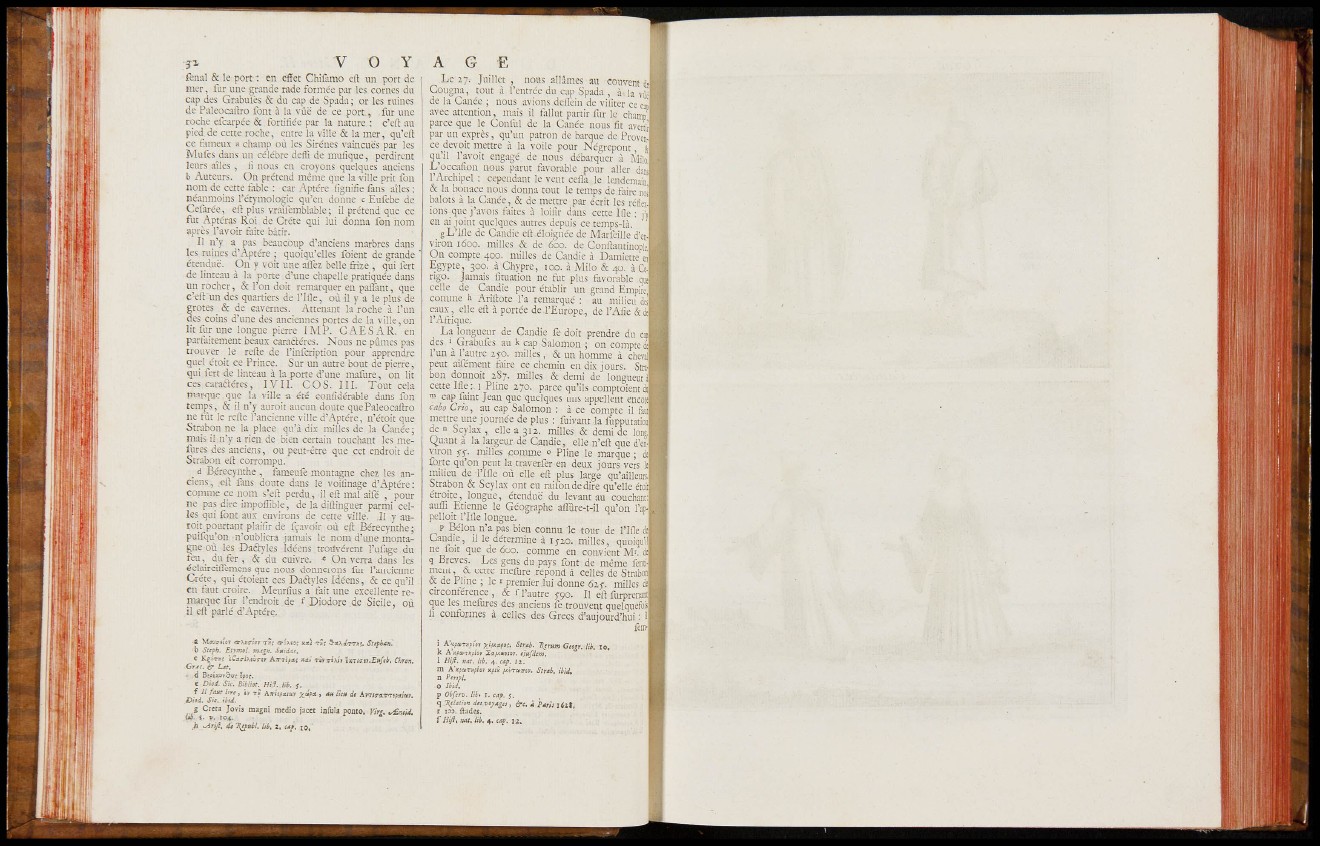 32 VOYAGE
senal & le port : en effet Chisamo est un port de
mer, sur une grande rade formée par les cornes du
cap des Grabuses & du cap de Spada; or les ruines
de Paleocastro sont à la vûë de ce port, sur une
roche escarpée & fortifiée par la nature : c'est au
pied de cette roche, entre la ville & la mer, qu'est
ce fameux a champ où les Sirénes vaincuës par les
Muses dans un célébre deffi de musique, perdirent
leurs aîles, si nous en croyons quelques anciens
b Auteurs. On prétend même que la ville prit son
nom de cette fable : car Aptére signifie sans aîles :
néanmoins l'étymologie qu'en donne c Eusebe de
Cesarée, est plus vraissemblable; il prétend que ce
fut Aptéras Roi de Créte qui lui donna son nom
après l'avoir faite bâtir.
Il n'y a pas beaucoup d'anciens marbres dans
les ruines d'Aptére ; quoiqu'elles soient de grande
étenduë. On y voit une assez belle frize, qui sert
de linteau à la porte d'une chapelle pratiquée dans
un rocher, & l'on doit remarquer en passant, que
c'est un des quartiers de l'Isle, où il y a le plus de
grotes & de cavernes. Attenant la roche à l'un
des coins d'une des anciennes portes de la ville, on
lit sur une longue pierre IMP. CAESAR. en
parfaitement beaux caractéres. Nous ne pûmes pas
trouver le reste de l'inscription pour apprendre
quel étoit ce Prince. Sur un autre bout de pierre,
qui sert de linteau à la porte d'une masure, on lit
ces caractéres, IVII. COS. III. Tout cela
marque que la ville a été considérable dans son
temps, & il n'y auroit aucun doute que Paleocastro
ne fût le reste l'ancienne ville d'Aptére, n'étoit que
Strabon ne la place qu'à dix milles de la Canée;
mais il n'y a rien de bien certain touchant les me-
sures des anciens, ou peut-être que cet endroit de
Strabon est corrompu.
d Bérecynthe, fameuse montagne chez les an-
ciens, est sans doute dans le voisinage d'Aptére:
comme ce nom s'est perdu, il est mal aisé, pour
ne pas dire impossible, de la distinguer parmi cel-
les qui sont aux environs de cette ville. Il y au-
roit pourtant plaisir de sçavoir où est Bérecynthe;
puisqu'on n'oubliera jamais le nom d'une monta-
gne où les Dactyles Idéens trouvérent l'usage du
feu, du fer, & du cuivre. e On verra dans les
éclaircissemens que nous donnerons sur l'ancienne
Créte, qui étoient ces Dactyles Idéens, & ce qu'il
en faut croire. Meursius a fait une excellente re-
marque sur l'endroit de f Diodore de Sicile, où
il est parlé d'Aptére.
b Steph. Etymol. magn. Suidas.
Græc. & Lat.
e Diod. Sic. Bibliot. Hist. lib. 5.
Diod. Sic. ibid.
g Creta Jovis magni medio jacet insula ponto. Virg. Æneid.
lib. 3. v. 104.
h Arist. de Republ. lib. 2. cap. 10.
Le 27. Juillet, nous allâmes au couvent
Cougna, tout à l'entrée du cap Spada, à la
de la Canée ; nous avions dessein de visiter ce
avec attention, mais il fallut partir sur le champ,
parce que le Consul de la Canée nous fit avertir
par un exprès, qu'un patron de barque de Proven-
ce devoit mettre à la voile pour Négrepont,
qu'il l'avoit engagé de nous débarquer à Milo.
L'occasion nous parut favorable pour aller dans
l'Archipel : cependant le vent cessa le lendemain,
& la bonace nous donna tout le temps de faire nos
balots à la Canée, & de mettre par écrit les réfle-
xions que j'avois faites à loisir dans cette Isle : j'y
en ai joint quelques autres depuis ce temps-là.
g L'Isle de Candie est éloignée de Marseille d'en-
viron 1600. milles & de 600. de Constantinople.
On compte 400. milles de Candie à Damiette en
Egypte, 300. à Chypre, 100. à Milo & 40. à Ce-
rigo. Jamais situation ne fut plus favorable que
celle de Candie pour établir un grand Empire,
comme h Aristote l'a remarqué : au milieu des
eaux, elle est à portée de l'Europe, de l'Asie & de
l'Afrique.
La longueur de Candie se doit prendre du cap
des i Grabuses au k cap Salomon ; on compte de
l'un à l'autre 250. milles, & un homme à cheval
peut aisément faire ce chemin en dix jours. Stra-
bon donnoit 287. milles & demi de longueur à
cette Isle : l Pline 270. parce qu'ils comptoient du
m cap saint Jean que quelques uns appellent encore
cabo Crio, au cap Salomon : à ce compte il faut
mettre une journée de plus : suivant la supputation
de n Scylax, elle a 312. milles & demi de long.
Quant à la largeur de Candie, elle n'est que d'en-
viron 55. milles comme o Pline le marque ; de
sorte qu'on peut la traverser en deux jours vers le
milieu de l'Isle où elle est plus large qu'ailleurs.
Strabon & Scylax ont eu raison de dire qu'elle étoit
étroite, longue, étenduë du levant au couchant:
aussi Etienne le Géographe assûre-t-il qu'on l'ap-
pelloit l'Isle longue.
p Bélon n'a pas bien connu le tour de l'Isle de
Candie, il le détermine à 1520. milles, quoiqu'il
ne soit que de 600. comme en convient Mr. de
q Breves. Les gens du pays sont de même senti-
ment, & cette mesure répond à celles de Strabon
& de Pline ; le r premier lui donne 625. milles de
circonférence, & s l'autre 590. Il est surprenant
que les mesures des anciens se trouvent quelquefois
si conformes à celles des Grecs d'aujourd'hui :
l Hist. nat. lib. 4. cap. 12.
n Peripl.
o Ibid.
p Observ. lib. 1. cap. 5.
q Relation des voyages, &c. à Paris 1628.
s Hist. nat. lib. 4. cap. 12.